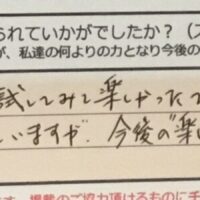 られていかがでしたか？（ス
が、私達の何よりの力となり今後の
試してみて楽しかったで
いますが、今後の"楽し
掲載のご協力頂けるものに